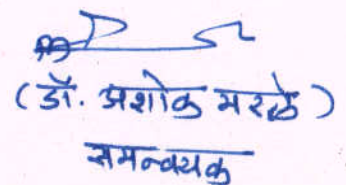 (डॉ. अशोक मरळे)
समन्वयक